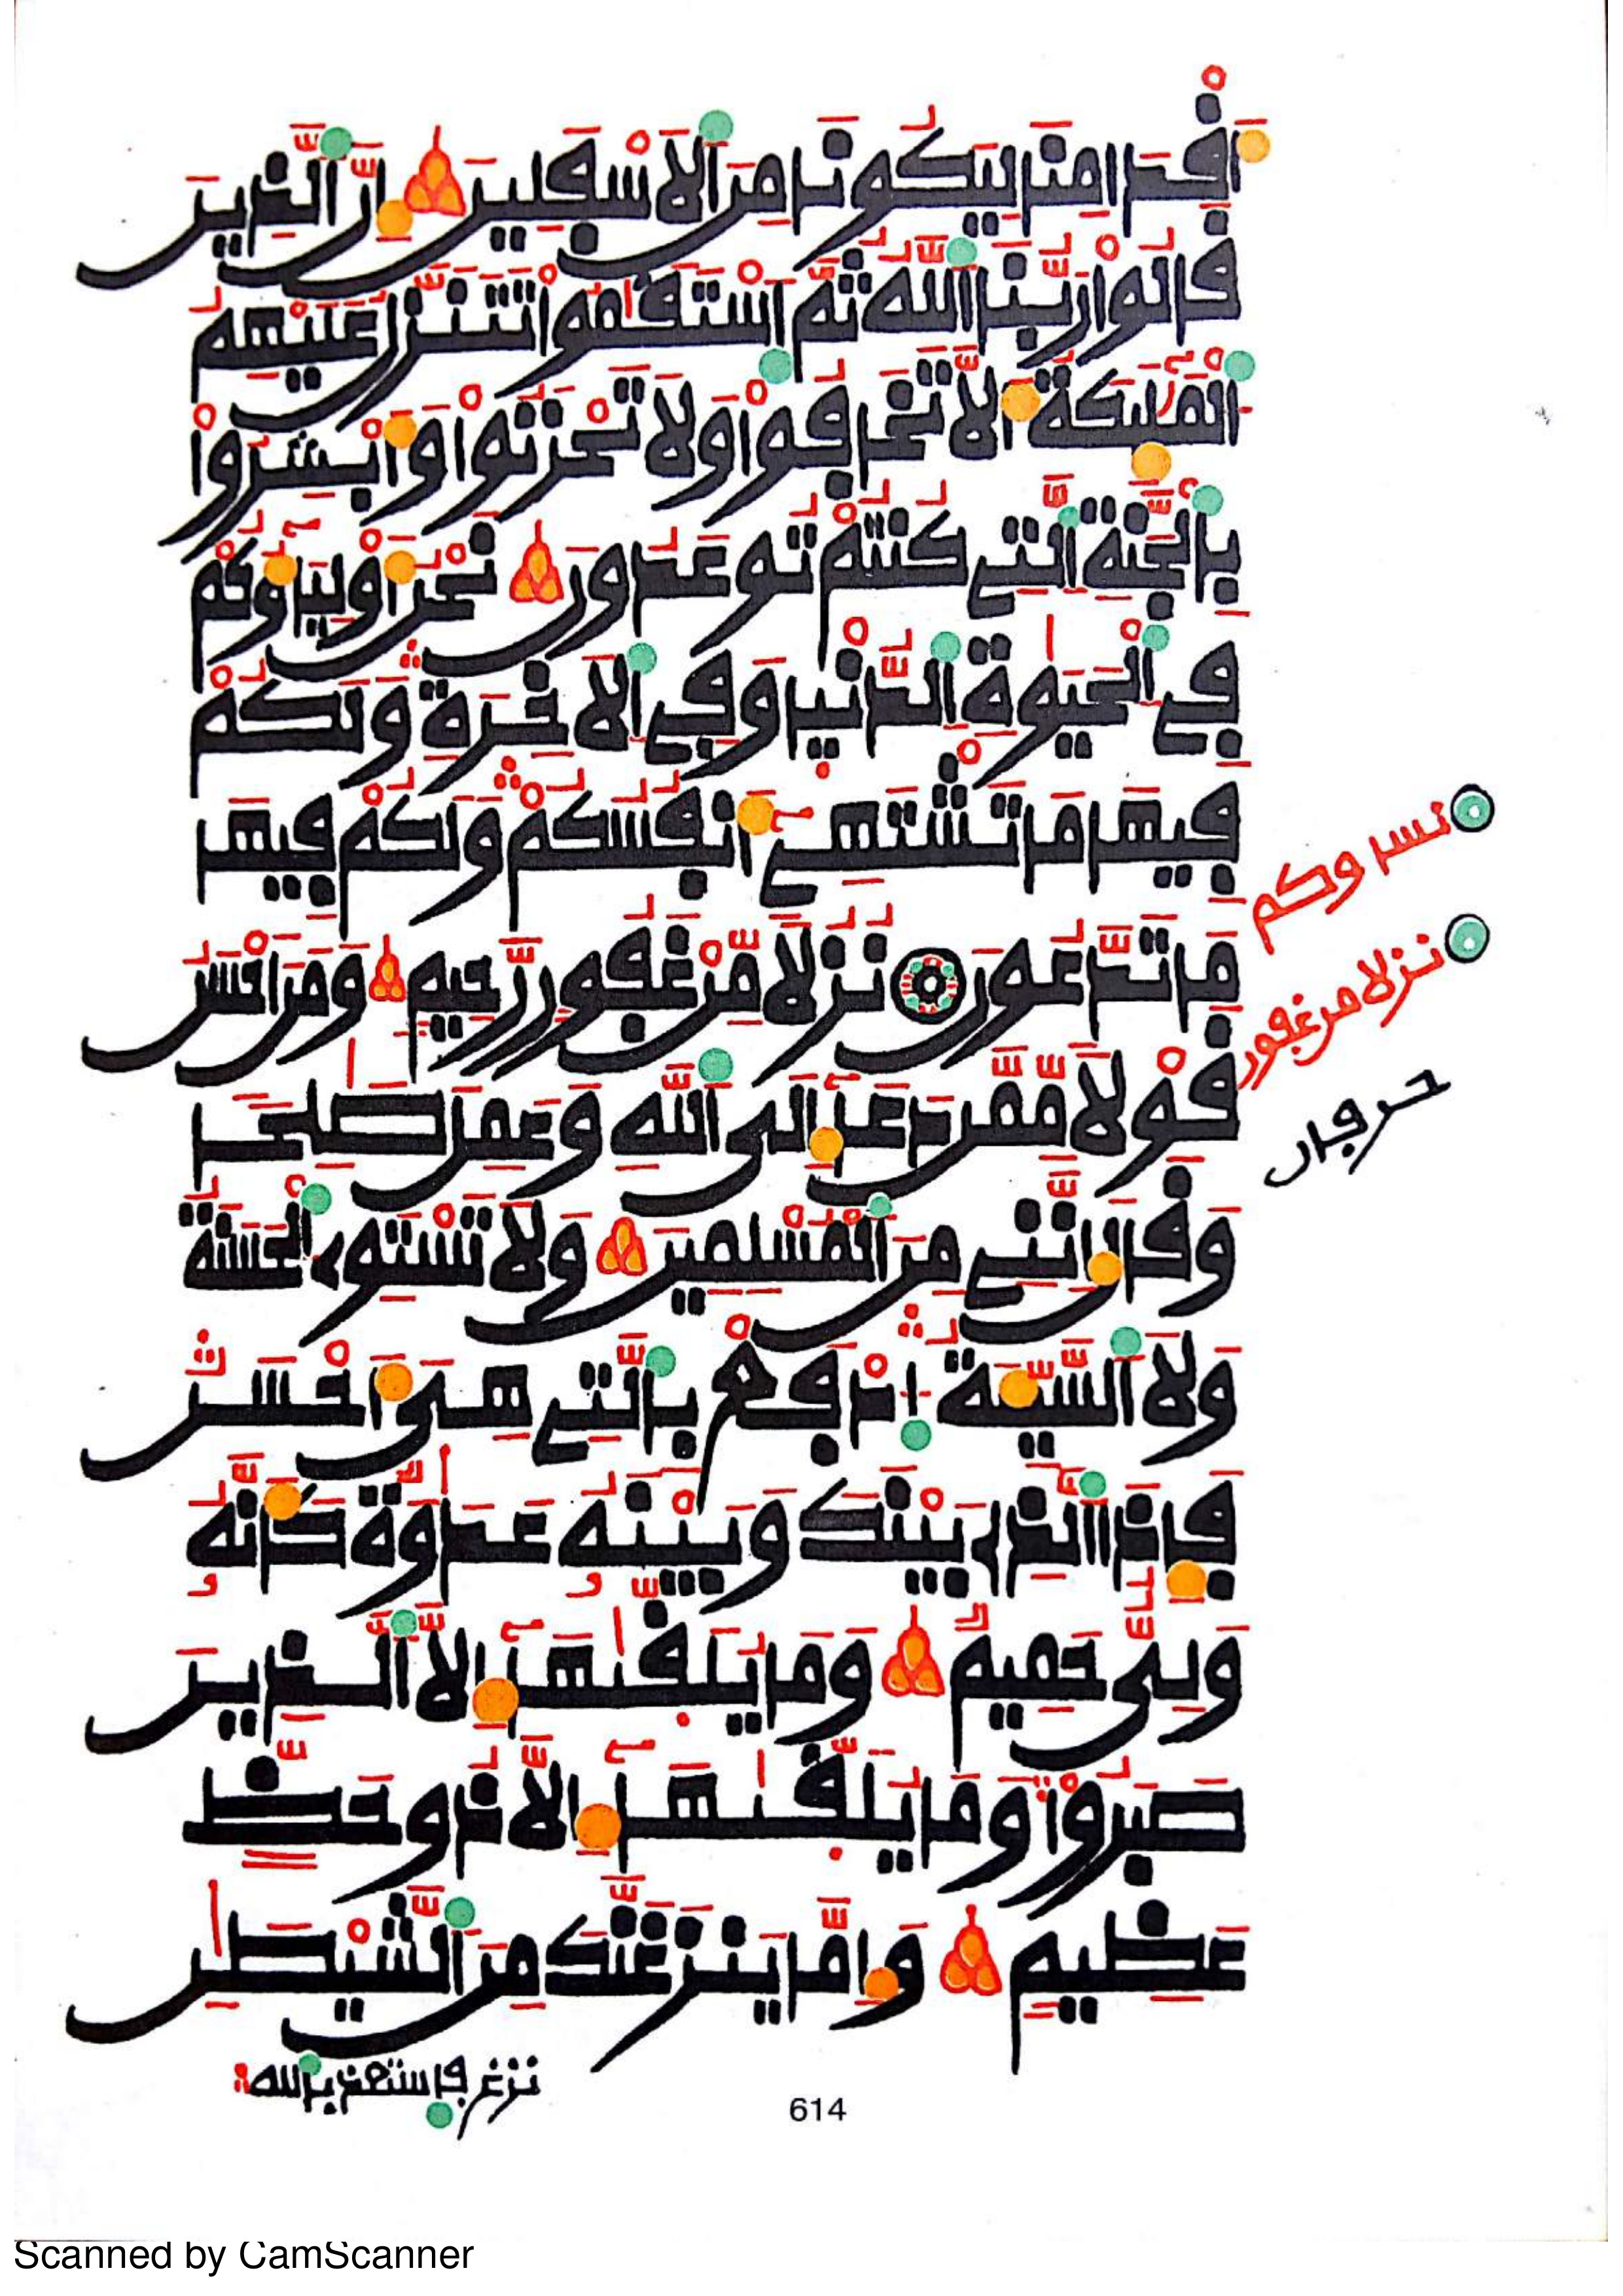 أَقْدَامِنَا لِيَكُونَا مِنَ ٱلَاسْفَلِينَ إِنَّ ٱلذِينَ
قَالُواْ رَبُّنَا ٱللَّهُ ثُمَّ ٱسْتَقَٰمُواْ تَتَنَزَّلُ عَلَيْهِمُ
ٱلْمَلَٰٓئِكَةُ أَلَّا تَخَافُواْ وَلَا تَحْزَنُواْ وَأَبْشِرُواْ
بِالْجَنَّةِ ٱلتِے كُنتُمْ تُوعَدُونَ نَحْنُ أَوْلِيَآؤُكُمْ
فِے ٱلْحَيَوٰةِ ٱلدُّنْيَا وَفِے ٱلَاخِرَةِ وَلَكُمْ
فِيهَا مَا تَشْتَهِےٓ أَنفُسُكُمْ وَلَكُمْ فِيهَا
مَا تَدَّعُونَ نُزُلًا مِّنْ غَفُورٍ رَّحِيمٍ وَمَنَ اَحْسَنُ
قَوْلًا مِّمَّن دَعَآ إِلَى ٱللَّهِ وَعَمِلَ صَٰلِحًا
وَقَالَ إِنَّنِے مِنَ ٱلْمُسْلِمِينَ وَلَا تَسْتَوِے ٱلْحَسَنَةُ
وَلَا ٱلسَّيِّئَةُ ٱدْفَعْ بِالتِے هِيَ أَحْسَنُ
فَإِذَا ٱلذِے بَيْنَكَ وَبَيْنَهُۥ عَدَٰوَةٌ كَأَنَّهُۥ
وَلِيٌّ حَمِيمٌ وَمَا يُلَقَّيٰهَآ إِلَّا ٱلذِينَ
صَبَرُواْ وَمَا يُلَقَّيٰهَآ إِلَّا ذُو حَظٍّ
عَظِيمٍ وَإِمَّا يَنزَغَنَّكَ مِنَ ٱلشَّيْطَٰنِ
نزغ فاستعذ بالله
نسا وكم
نزلا من غفور
حرفان
614
Scanned by CamScanner